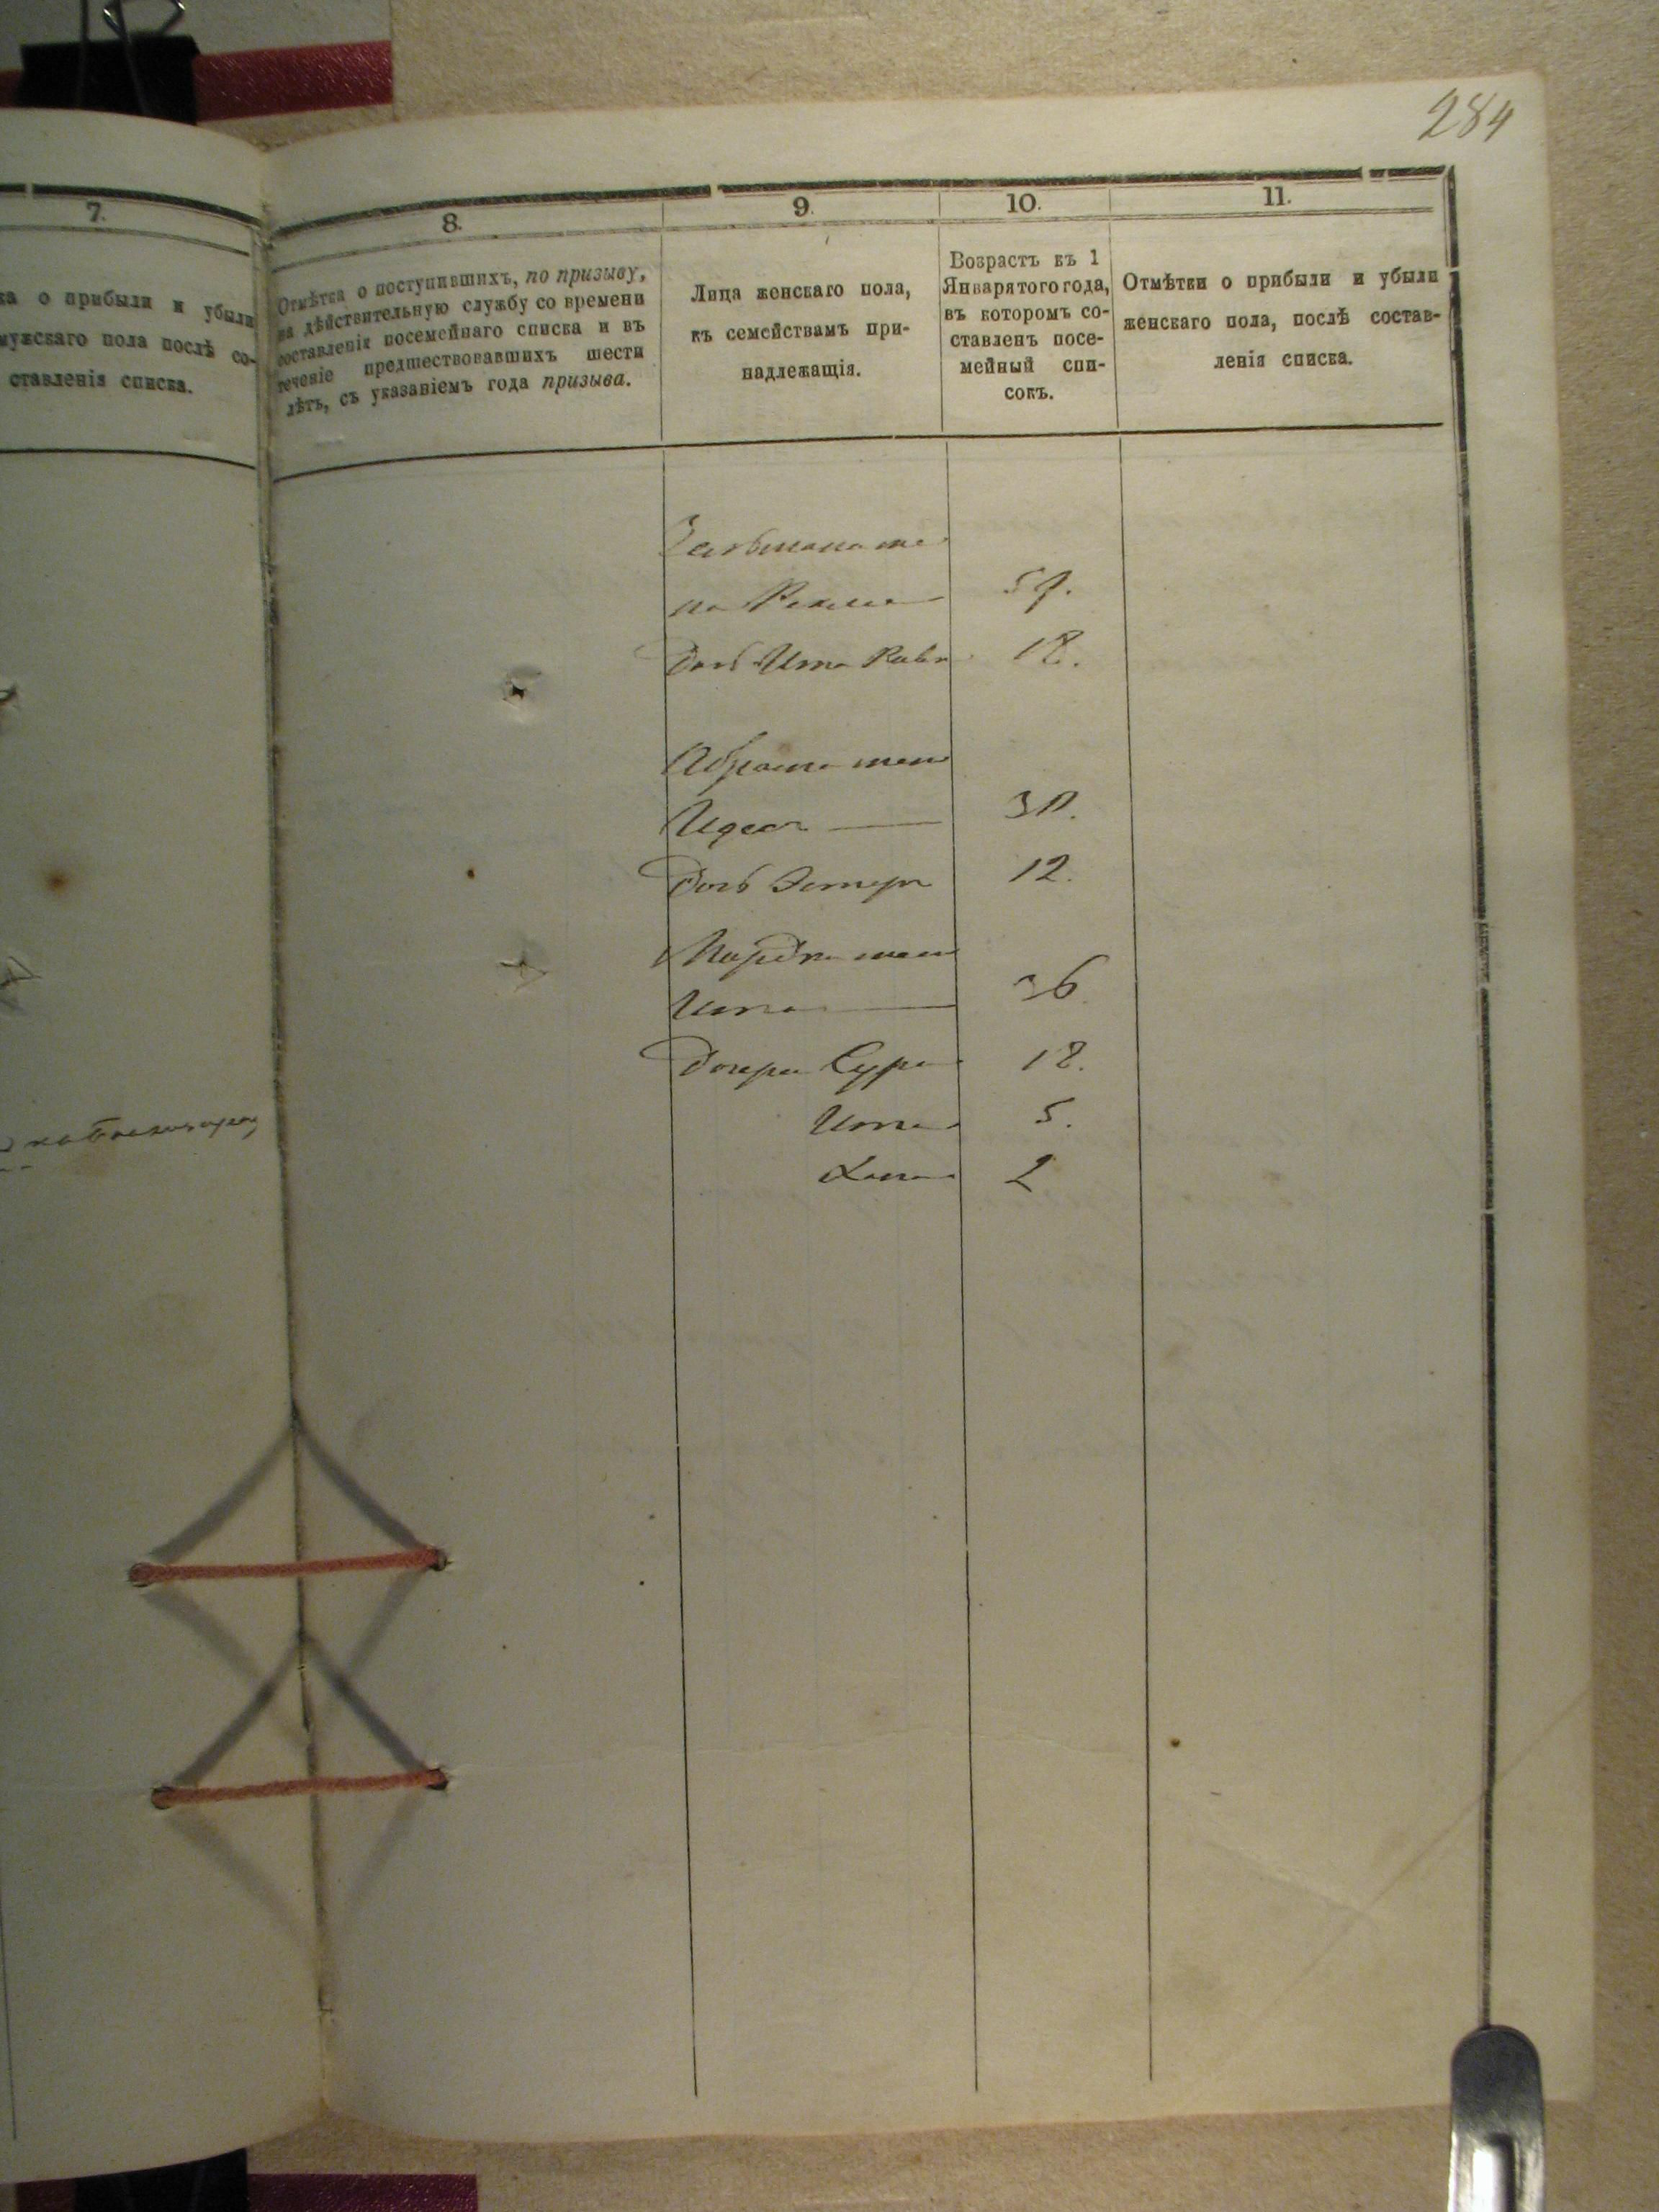 284
7.
8.
9.
10.
11.
ка о прибыли и убыли
мужскаго пола послѣ со-
ставленія списка.
Отмѣтка о поступившихъ, по призыву,
на дѣйствительную службу со времени
составленія посемейнаго списка и въ
теченіе предшествовавшихъ шести
лѣтъ, съ указаніемъ года призыва.
Лица женскаго пола,
къ семействамъ при-
надлежащія.
Возрастъ къ 1
Января того года,
въ которомъ со-
ставленъ посе-
мейный спи-
сокъ.
Отмѣтки о прибыли и убыли
женскаго пола, послѣ состав-
ленія списка.
Зельмана же
на 59.
Дочь Ита 18.
Абрама жена
30.
Дочь Эстера 12.
Мордка жена
Ита 36
Дочери Сура 18.
Ита 5.
Хана 2